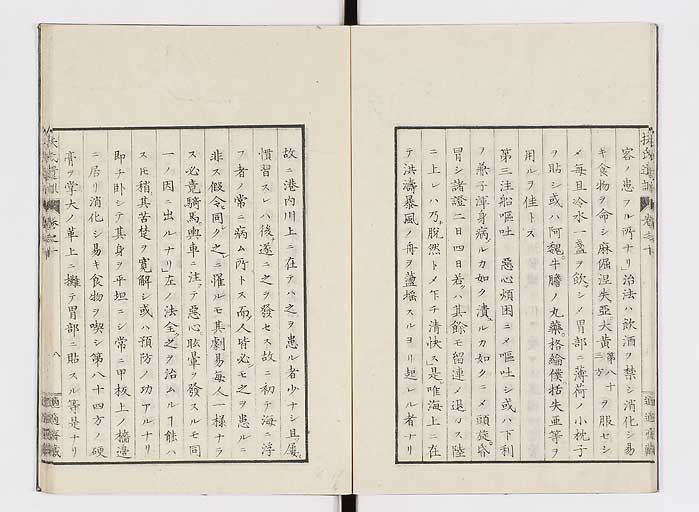 扶氏遺訓 巻之十
容ノ患フル所ナリ」治法ハ飲酒ヲ禁シ消化シ易
キ食物ヲ命シ麻倔涅失亞大黄第八十三方ヲ服セシ
メ毎且冷水一盞ヲ飲シメ胃部ニ薄荷ノ小枕子
ヲ貼シ或ハ阿魏牛膽ノ丸藥格綸僕括失亜等ヲ
用ルヲ佳トス
第三注船嘔吐 惡心煩困ニメ嘔吐シ或ハ下利
ヲ兼子渾身病ルカ如ク潰ルカ如クニメ頭旋昏
冒シ諸證二日四日若クハ其餘モ留連ノ退カス陸
ニ上レハ乃チ脱然トメ乍チ清快ス是唯海上ニ在
テ洪濤暴風ノ舟ヲ盪揺スルヨリ起レル者ナリ
適適齋藏
故ニ港内川上ニ在テハ之ヲ患ル者少ナシ且屢
慣習スレハ後遂ニ之ヲ發セス故ニ初テ海ニ浮
フ者ノ常ニ病ム所トス而人皆必モ之ヲ患ルニ
非ス假令同ク之ニ罹ルモ其劇易毎人一様ナラ
ス必竟騎馬輿車ニ注テ惡心眩暈ヲ發スルモ同
一ノ因ニ出ルナリ」左ノ法全ク之ヲ治ムルヿ能ハ
スㇳモ稍其苦楚ヲ寛解シ或ハ預防ノ功アルナリ
即チ卧シテ其身ヲ平坦ニシ常ニ甲板上ノ檣邉
ニ居リ消化シ易キ食物ヲ喫シ第八十四方ノ硬
膏ヲ掌大ノ革上ニ攤テ胃部ニ貼スル等是ナリ
扶氏遺訓 巻之十
八
適適齋藏